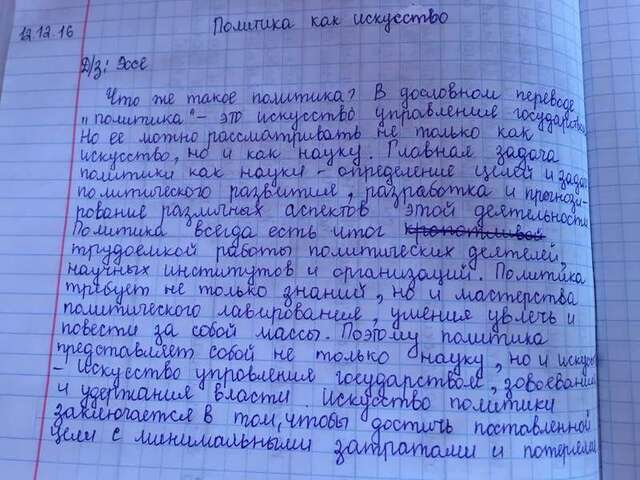 12.12.16
Политика как искусство
Д/З: Эссе
Что же такое политика? В дословном переводе
"политика" – это искусство управления государством
Но ее можно рассматривать не только как
искусство, но и как науку. Главная задача
политики как науки – определение целей и задач
политического развития, разработка и прогнози-
рование различных аспектов этой деятельности
Политика всегда есть итог
трудоемкой работы политических деятелей,
научных институтов и организаций. Политика
требует не только знаний, но и мастерства
политического лавирования, умения увлечь и
повести за собой массы. Поэтому политика
представляет собой не только науку, но и искус
– искусство управления государством, завоевания
и удержания власти Искусство политику
заключается в том, чтобы достичь поставленной
цели с минимальными затратами и потерями